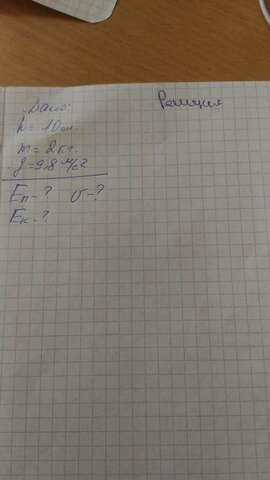 Дано:
Решение
h = 10 см
m = 2 кг.
g = 9,8 м/с2
Eп - ? υ - ?
Eк - ?